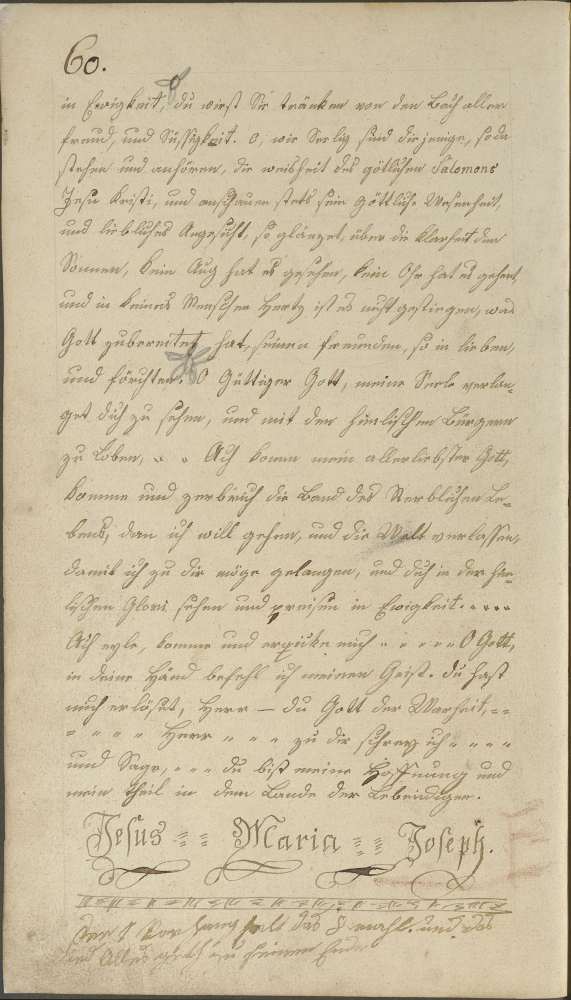 60.
in Ewigkeit, du wirst Sie tränken von den Bach aller
freud, und Süssigkeit. O, wie Seelig sind diejenige, so da
stehen und anhören, die weisheit des götlichen Salomons
Jesu Kristi, und anschauen stets sein Göttliche Wesenheit,
und liebliches Angesicht, so glänzet, über die Klarheit der
Sonnen, kein Aug hat es gesehen, kein Ohr hat es gehört,
und in keines Menschen Hertz ist es nicht gestiegen, was
Gott zubereitet hat, seinen freunden, so in lieben,
und förchten. O Güttiger Gott, meine Seele verlan=
get dich zu sehen, und mit den himlischen Bürgern
zu Loben, " " Ach komm mein allerliebster Gott,
komme und zerbrich die Band des Sterblichen Le=
bens, dan ich will gehen, und die Welt verlassen,
damit ich zu dir möge gelangen, und dich in der
lischen Glori sehen und preisen in Ewigkeit. " " " "
Ach eyle, komme und erquike mich " " " " " O Gott,
in deine Händ befehl ich meinen Geist. du hast
mich erlöset, Herr — du Gott der Warheit, = =
" " " " Herr " " " zu dir schrey ich " " " "
und Sage, " " " du bist meine Hoffnung und
mein theil in dem Lande der Lebendigen.
Jesus = = Maria = = Joseph.
das und das
Alles zu seinem Ende